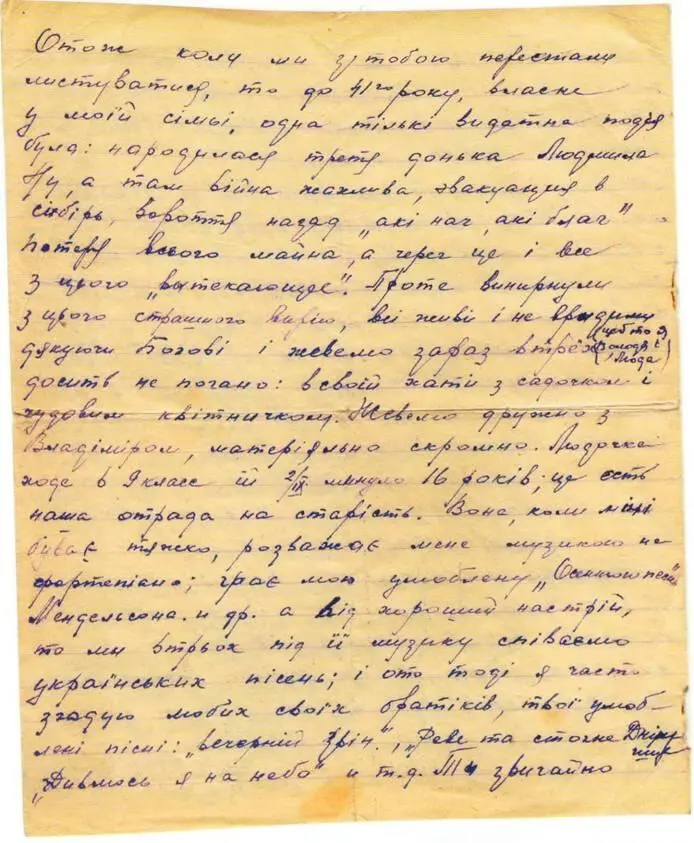 Отож коли ми з тобою перестали
листуватися, то до 41го року, власне
у моїй сімьі, одна тількі видатна подія
була: народилася третя донька Людмила
Ну, а там війна жахлива, эвакуация в
сибірь, вороття назад „акі наг, акі благ"
потеря всього майна, а через це і все
з цього „вытекающее". Проте виринули
з цього страшного виру, всі живі і не вредими
дякуючи Богові і живемо зараз втрёх (цебто я, Володя і Люда)
досить не погано: в своїй хати з садочком і
чудовим квітничком. Живемо дружно з
Владіміром, матеріяльно скромно. Людочка
ходе в 9 класс їй 2/IX минуло 16 років; це єсть
наша отрада на старість. Вона, коли міні
буває тяжко, розважає мене музикою на
фортепіано; грає мою улюблену „Осенню песн
Мендельсона. и др. а від хороший настрій,
то ми втрьох під її музику співаємо
українських пісень; і ото тоді я часто
згадую любих своїх братіків, твої улюб-
лені пісні: „вечерній дзвін", „Реве та стогне Дніпр
„Дивлюсь я на небо" и т.д. Ти звичайно